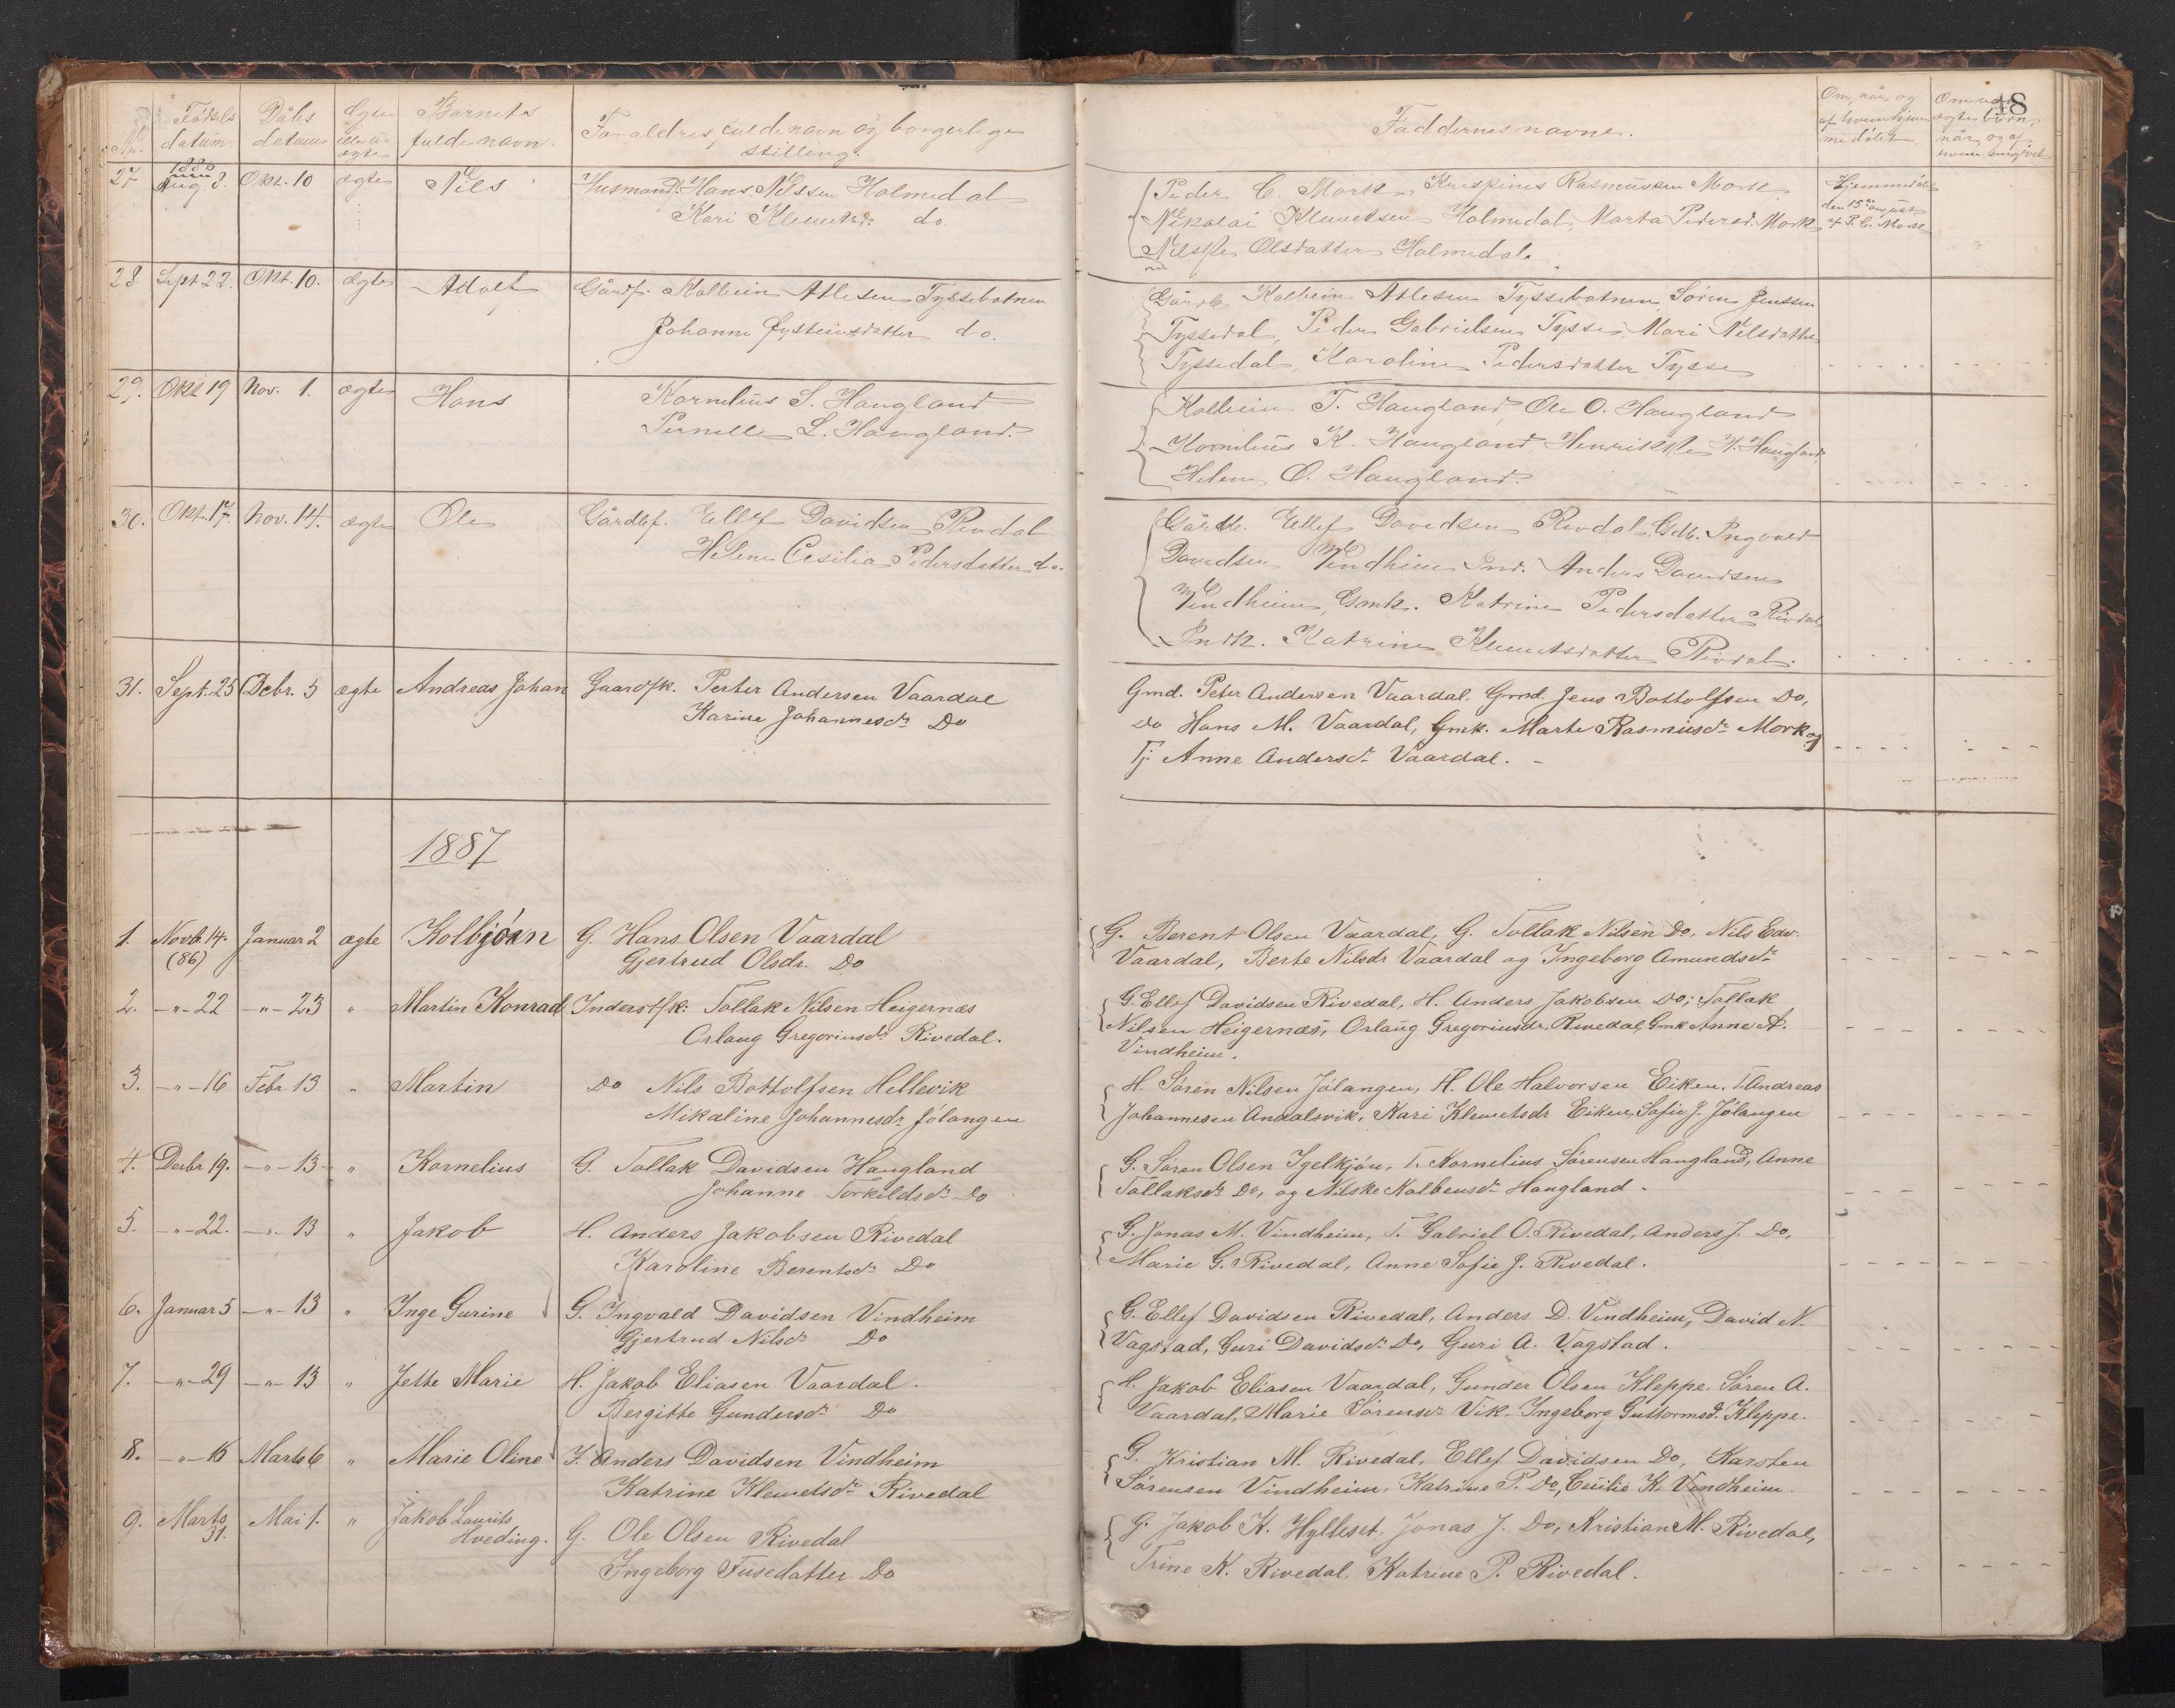 48
No. Fødsels datum. Dåbs datum Ægte eller uægte Barnets fulde navn. Forældres fulde navn og borgerlige stilling.
Faddernes navne. Om, når og af hvem hjemmedøbt
27 1886 Aug. 3. Okt. 10 ægte Nils Husmandsf. Hans Nilssen Holmedal
Kari Klemetsd. do.
Peder C. Mork, Krispinus Rasmussen Mork
Nikolai Klemetsen Holmedal, Marta Pedersd. Mork
Nilske Olsdatter Holmedal.
Hjemmedøbt
den 15de august
af P. C. Mork
28. Sept. 22. Okt. 10. ægte Adolf Gårdf. Kolbein Atlesen Tyssebotnen
Johanne Øysteinsdatter do.
Gårdb. Kolbein Atlesen Tyssebotnen Søren Jenssen
Tyssedal, Peder Gabrielsen Tysse, Mari Nilsdatter
Tyssedal, Karoline Pedersdatter Tysse
29. Okt 19 Nov. 1. ægte Hans Kornelius S. Haugland
Pernelle L. Haugland.
Kolbein T. Haugland, Ole O. Haugland
Kornelius K. Haugland, Henrikke H. Haugland,
Helene O. Haugland.
30. Okt. 17. Nov. 14. ægte Ole Gårdbf. Ellef Davidsen Rivdal
Helene Cesilia Pedersdatter do.
Gårdb. Ellef Davidsen Rivdal, Gdb. Ingvald
Davidsen Vindheim Ind. Anders Davidsen
Vindheim, Gmk. Katrine Pedersdatter Rivdal,
Indk. Katrine Klemetsdatter Rivdal.
31. Sept. 25 Debr. 5 ægte Andreas Johan Gaardfk. Peter Andersen Vaardal
Karine Johannesdr Do
Gmd. Peter Andersen Vaardal. Gmd. Jens Bottolfsen Do,
Do Hans M. Vaardal, Gmk. Marte Rasmusdr Mork og
Tj. Anne Andersdr Vaardal.
1887
1. Novb. 14. (86) Januar 2 ægte Kolbjörn G. Hans Olsen Vaardal
Gjertrud Olsdr. Do
G. Berent Olsen Vaardal, G. Tollak Nilsen Do, Nils Edv.
Vaardal, Berte Nilsdr Vaardal og Ingeborg Amundsdr
2. -"- 22 -"- 23 " Martin Konrad Inderstfk. Tollak Nilsen Heigernæs
Orlaug Gregoriusdr Rivedal.
G. Ellef Davidsen Rivedal, H. Anders Jakobsen Do, Tollak
Nilsen Heigernæs, Orlaug Gregoriusdr. Rivedal, Gmk Anne A.
Vindheim.
3. -"- 16 Febr. 13 " Martin Do Nils Bottolfsen Hellevik
Mikaline Johannesdr Jölangen
H. Søren Nilsen Jölangen, H. Ole Halvorsen Eiken, T. Andreas
Johannesen Andalsvik, Kari Klemetsdr Eiken, Sofie J. Jölangen
4. Decbr 19. -"- 13 " Kornelius G. Tollak Davidsen Haugland
Johanne Torkildsdr Do
G. Søren Olsen Igelkjön, T. Kornelius Sørensen Haugland, Anne
Tollaksdr Do, og Nilske Kolbensdr Haugland.
5. -"- 22. -"- 13 " Jakob H. Anders Jakobsen Rivedal
Karoline Berentsdr Do
G. Jonas M. Vindheim, T. Gabriel O. Rivedal, Anders J. Do,
Marie G. Rivedal, Anne Sofie J. Rivedal.
6. Januar 5 -"- 13 " Inge Gurine G. Ingvald Davidsen Vindheim
Gjertrud Nilsdr Do
G. Ellef Davidsen Rivedal, Anders D. Vindheim, David N.
Vagstad, Guri Davidsdr Do, Guri A. Vagstad.
7. -"- 29 -"- 13 " Jette Marie H. Jakob Eliasen Vaardal.
Bergitte Gundersdr Do
H. Jakob Eliasen Vaardal, Gunder Olsen Kleppe, Søren A.
Vaardal, Marie Sørensdr Vik. Ingeborg Guttormsd. Kleppe.
8. -"- 16 Marts 6 " Marie Oline I. Anders Davidsen Vindheim
Katrine Klemetsdr Rivedal
G. Kristian M. Rivedal, Ellef Davidsen Do, Karsten
Sørensen Vindheim, Katrine P. Do, Cecilie K. Vindheim.
9. Marts 31. Mai 1. " Jakob Laurits Hveding. G. Ole Olsen Rivedal
Ingeborg Fusedatter Do
G. Jakob K. Hylleset, Jonas J. Do, Kristian M. Rivedal,
Trine K. Rivedal, Katrine P. Rivedal.